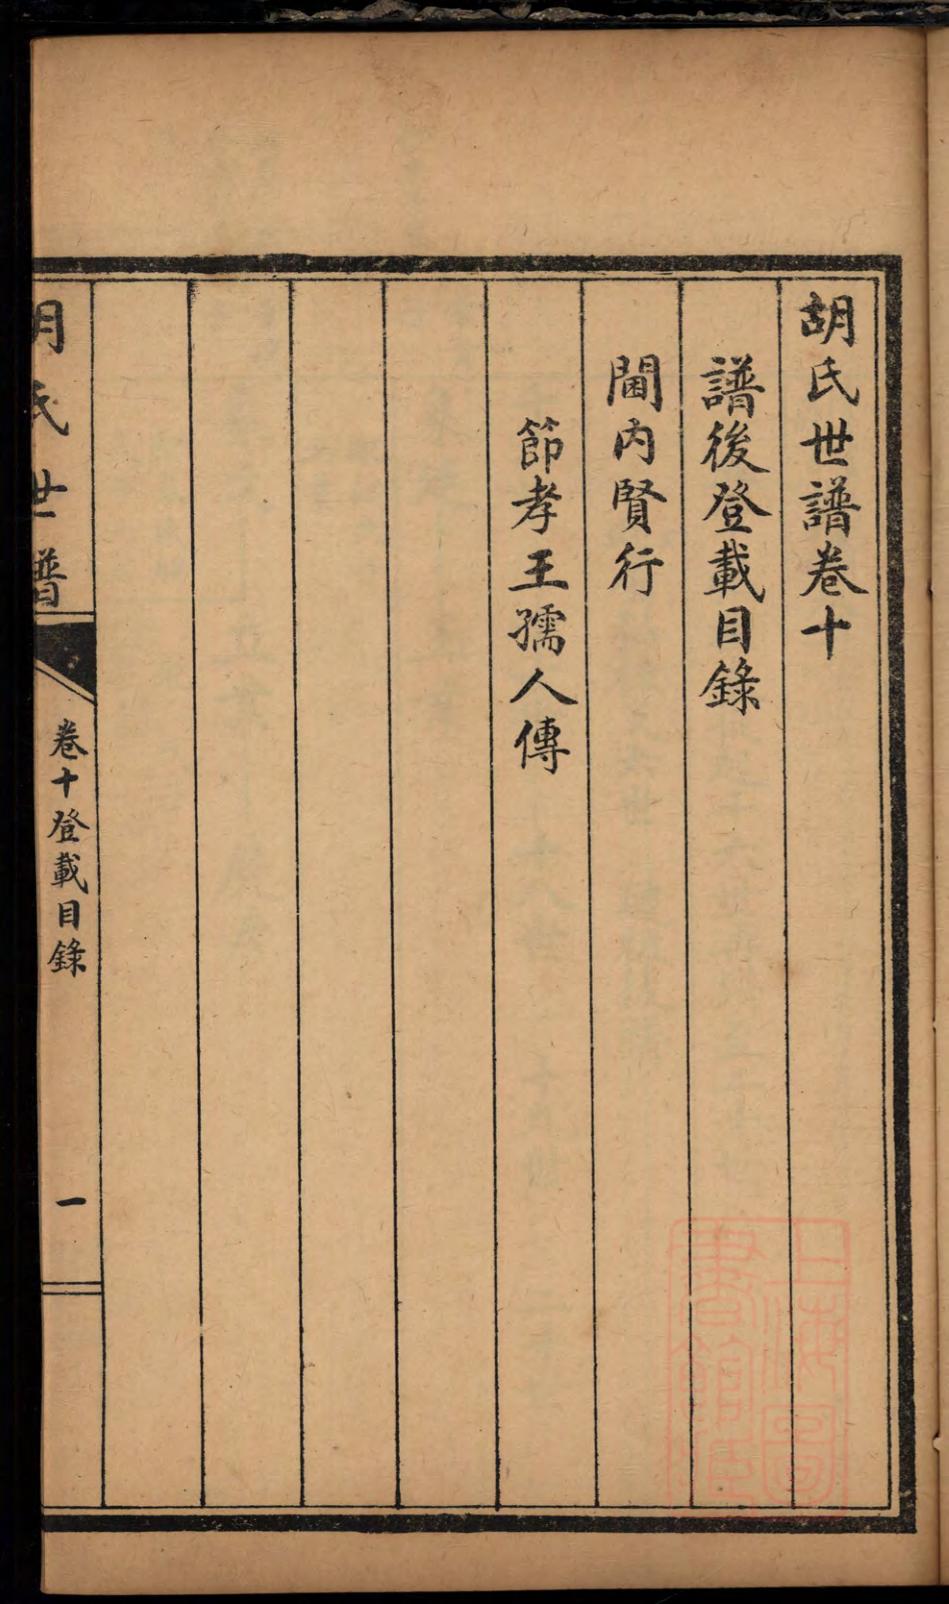 胡氏世譜卷十
譜後登載目錄
閫內賢行
節孝王孺人傳
胡氏世譜
卷十登載目錄
一
上海圖書館藏